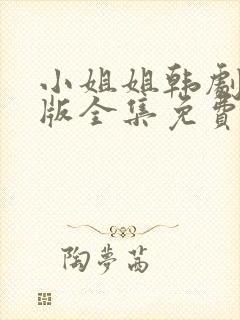 小姐姐韩劇
版全集免費
陶夢茜